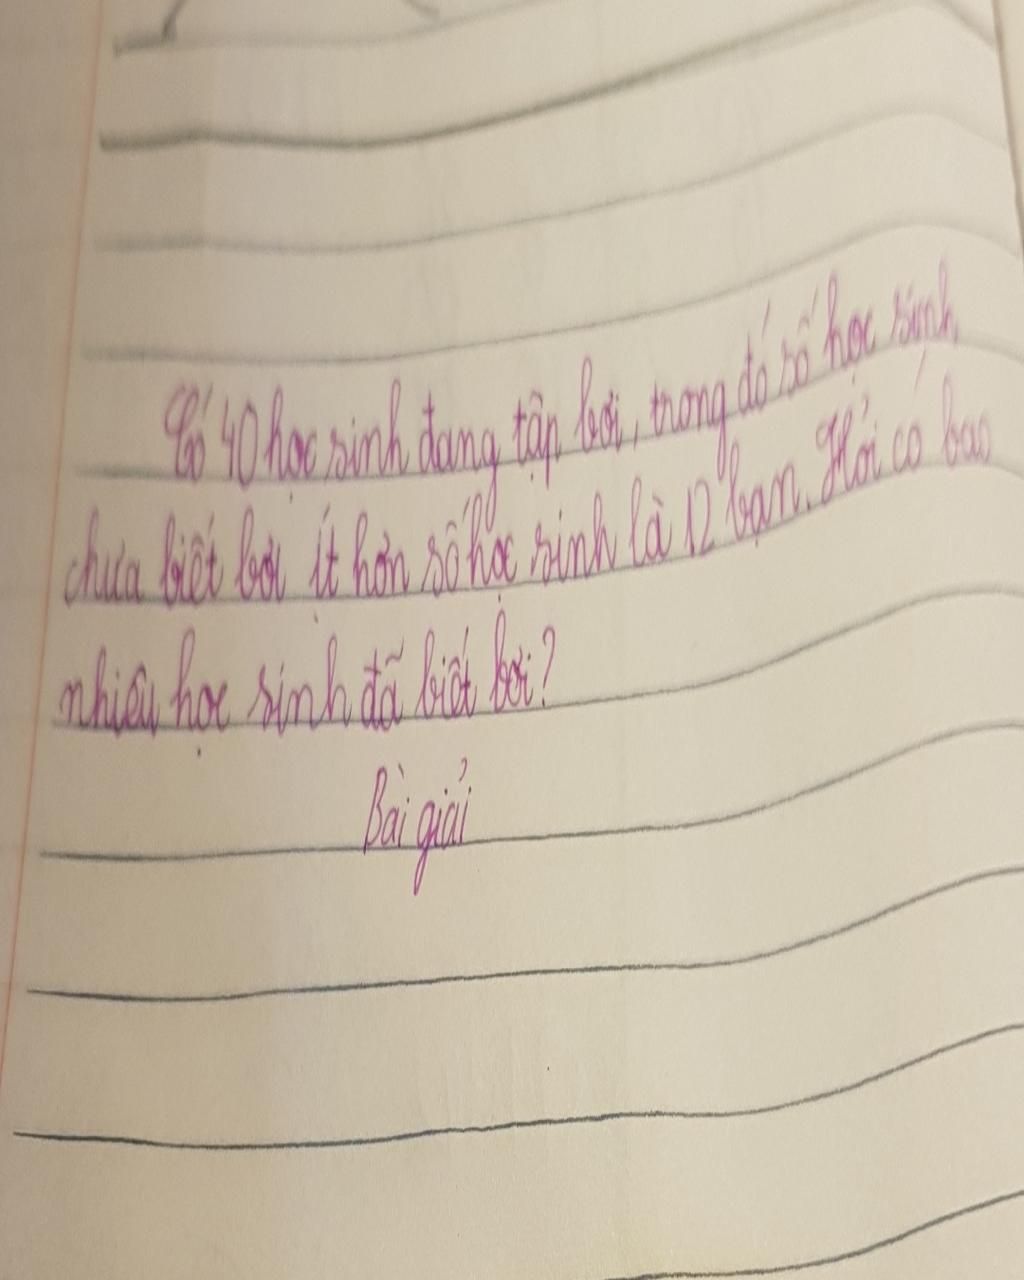 Có 40 học sinh đang tập bơi, trong đó số học sinh
chưa biết bơi ít hơn số học sinh là 12 bạn. Hỏi có bao
nhiêu học sinh đã biết bơi?
Bài giải